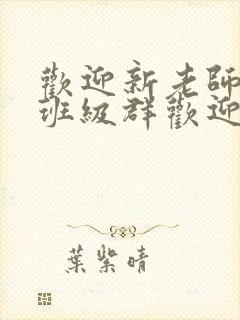 歡迎新老師
班級群歡迎
葉紫晴